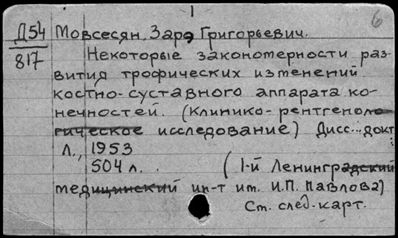 1
6
Д54 Мовсесян, Заро Григорьевич.
817 Некоторые закономерности раз-
вития трофических изменений
костно-суставного аппарата ко-
нечностей. (Клинико-рентгеноло-
гическое исследование) Дисс...докт
Л., 1953
504 л. (1-й Ленинградский
медицинский ин-т им. И.П. Павлова)
Ст. след. карт.